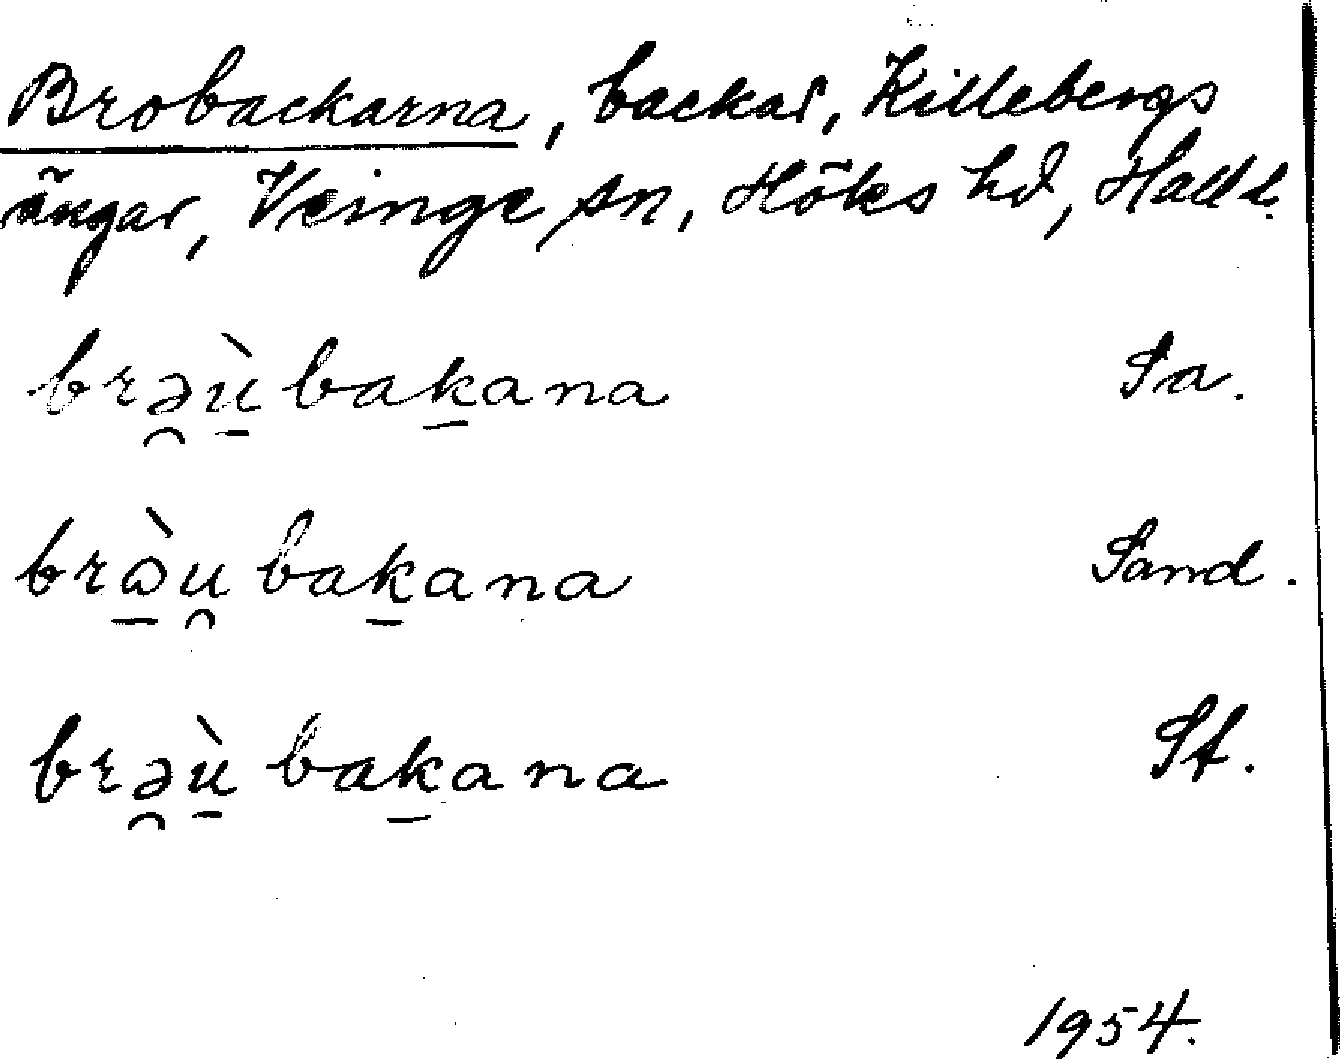 Brobackarna, backar, Killebergs
ängar, Veinge sn, Höks hd, Halld.
brə̯ù̱baḵana Sa.
brɷ̱̀u̯baḵana Sand.
brə̯ù̱baḵana St.
1954.